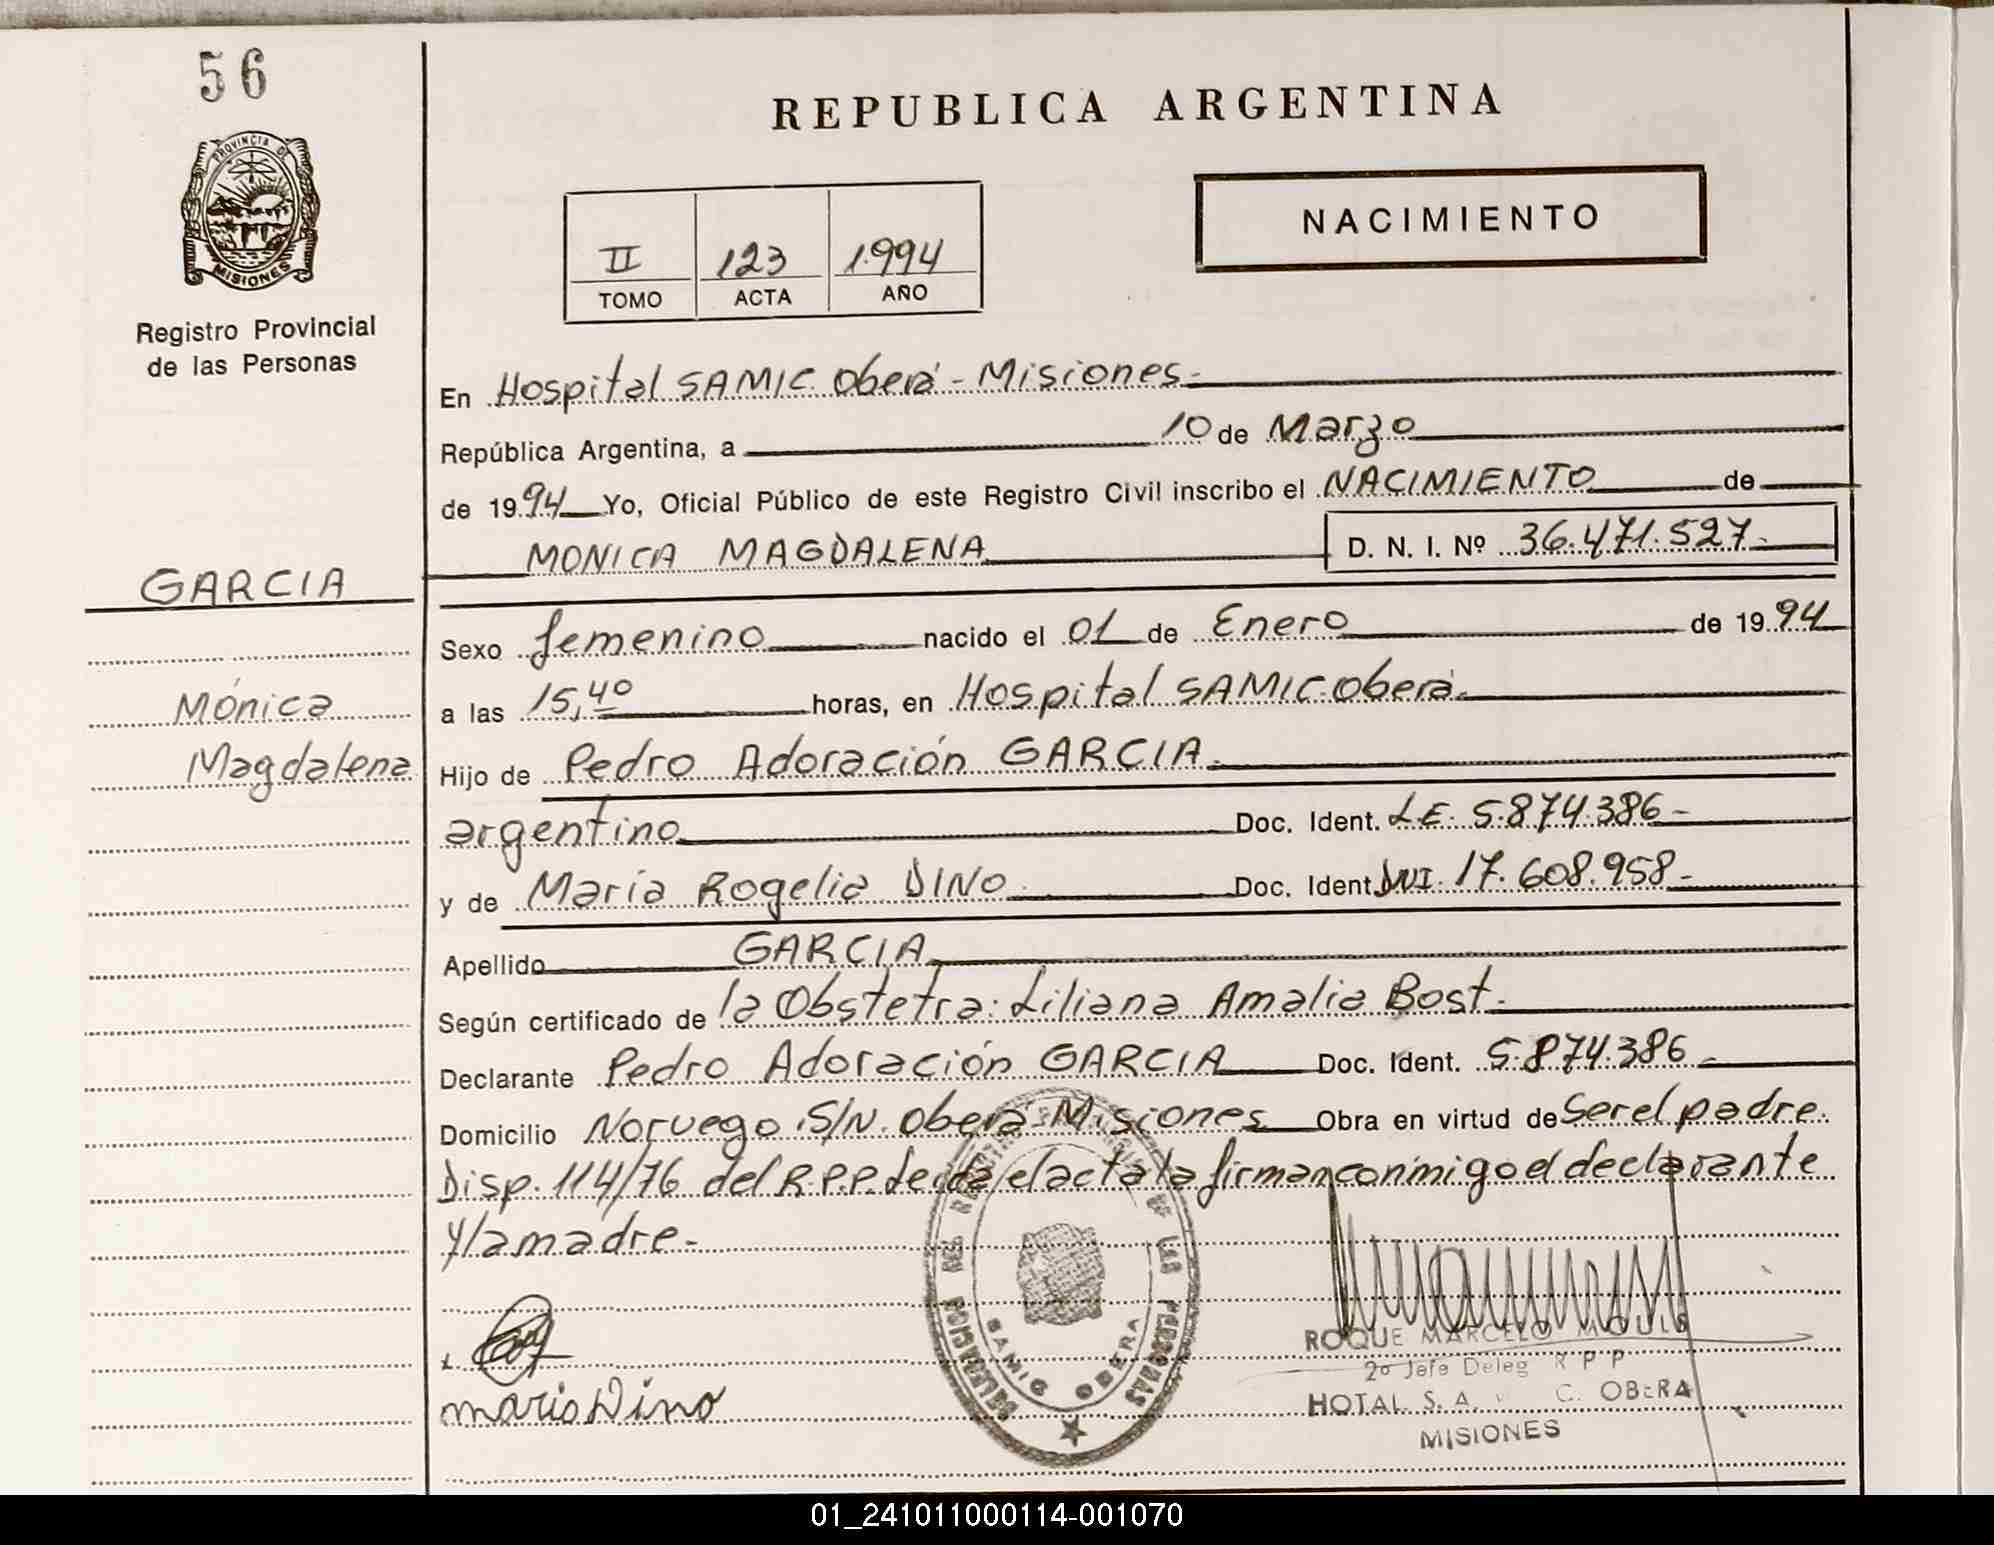 56
PROVINCIA DE
MISIONES
Registro Provincial
de las Personas
GARCIA
Mónica
Magdalena
REPUBLICA ARGENTINA
II 123 1.994
TOMO ACTA AÑO
NACIMIENTO
En Hospital SAMIC Oberá - Misiones -
República Argentina, a 10 de Marzo
de 1994 Yo, Oficial Público de este Registro Civil inscribo el NACIMIENTO de
MONICA MAGDALENA D. N. I. Nº 36.471.527-
Sexo femenino nacido el 01 de Enero de 1994
a las 15,40 horas, en Hospital SAMIC Oberá-
Hijo de Pedro Adoración GARCIA-
argentino Doc. Ident. LE. 5.874.386-
y de María Rogelia DINO Doc. Ident. DNI. 17.608.958-
Apellido GARCIA
Según certificado de la Obstetra: Liliana Amalia Bost.-
Declarante Pedro Adoración GARCIA Doc. Ident. 5.874.386-
Domicilio Noruego S/N. Oberá Misiones Obra en virtud de Ser el padre.
Disp. 114/76 del R.P.P. Leída el acta la firman conmigo el declarante
y la madre-
SAMIC OBERA
Maria Dino
ROQUE MARCELO
2º Jefe Deleg R P P
HOTAL S. A. C. OBERA
MISIONES
01_241011000114-001070